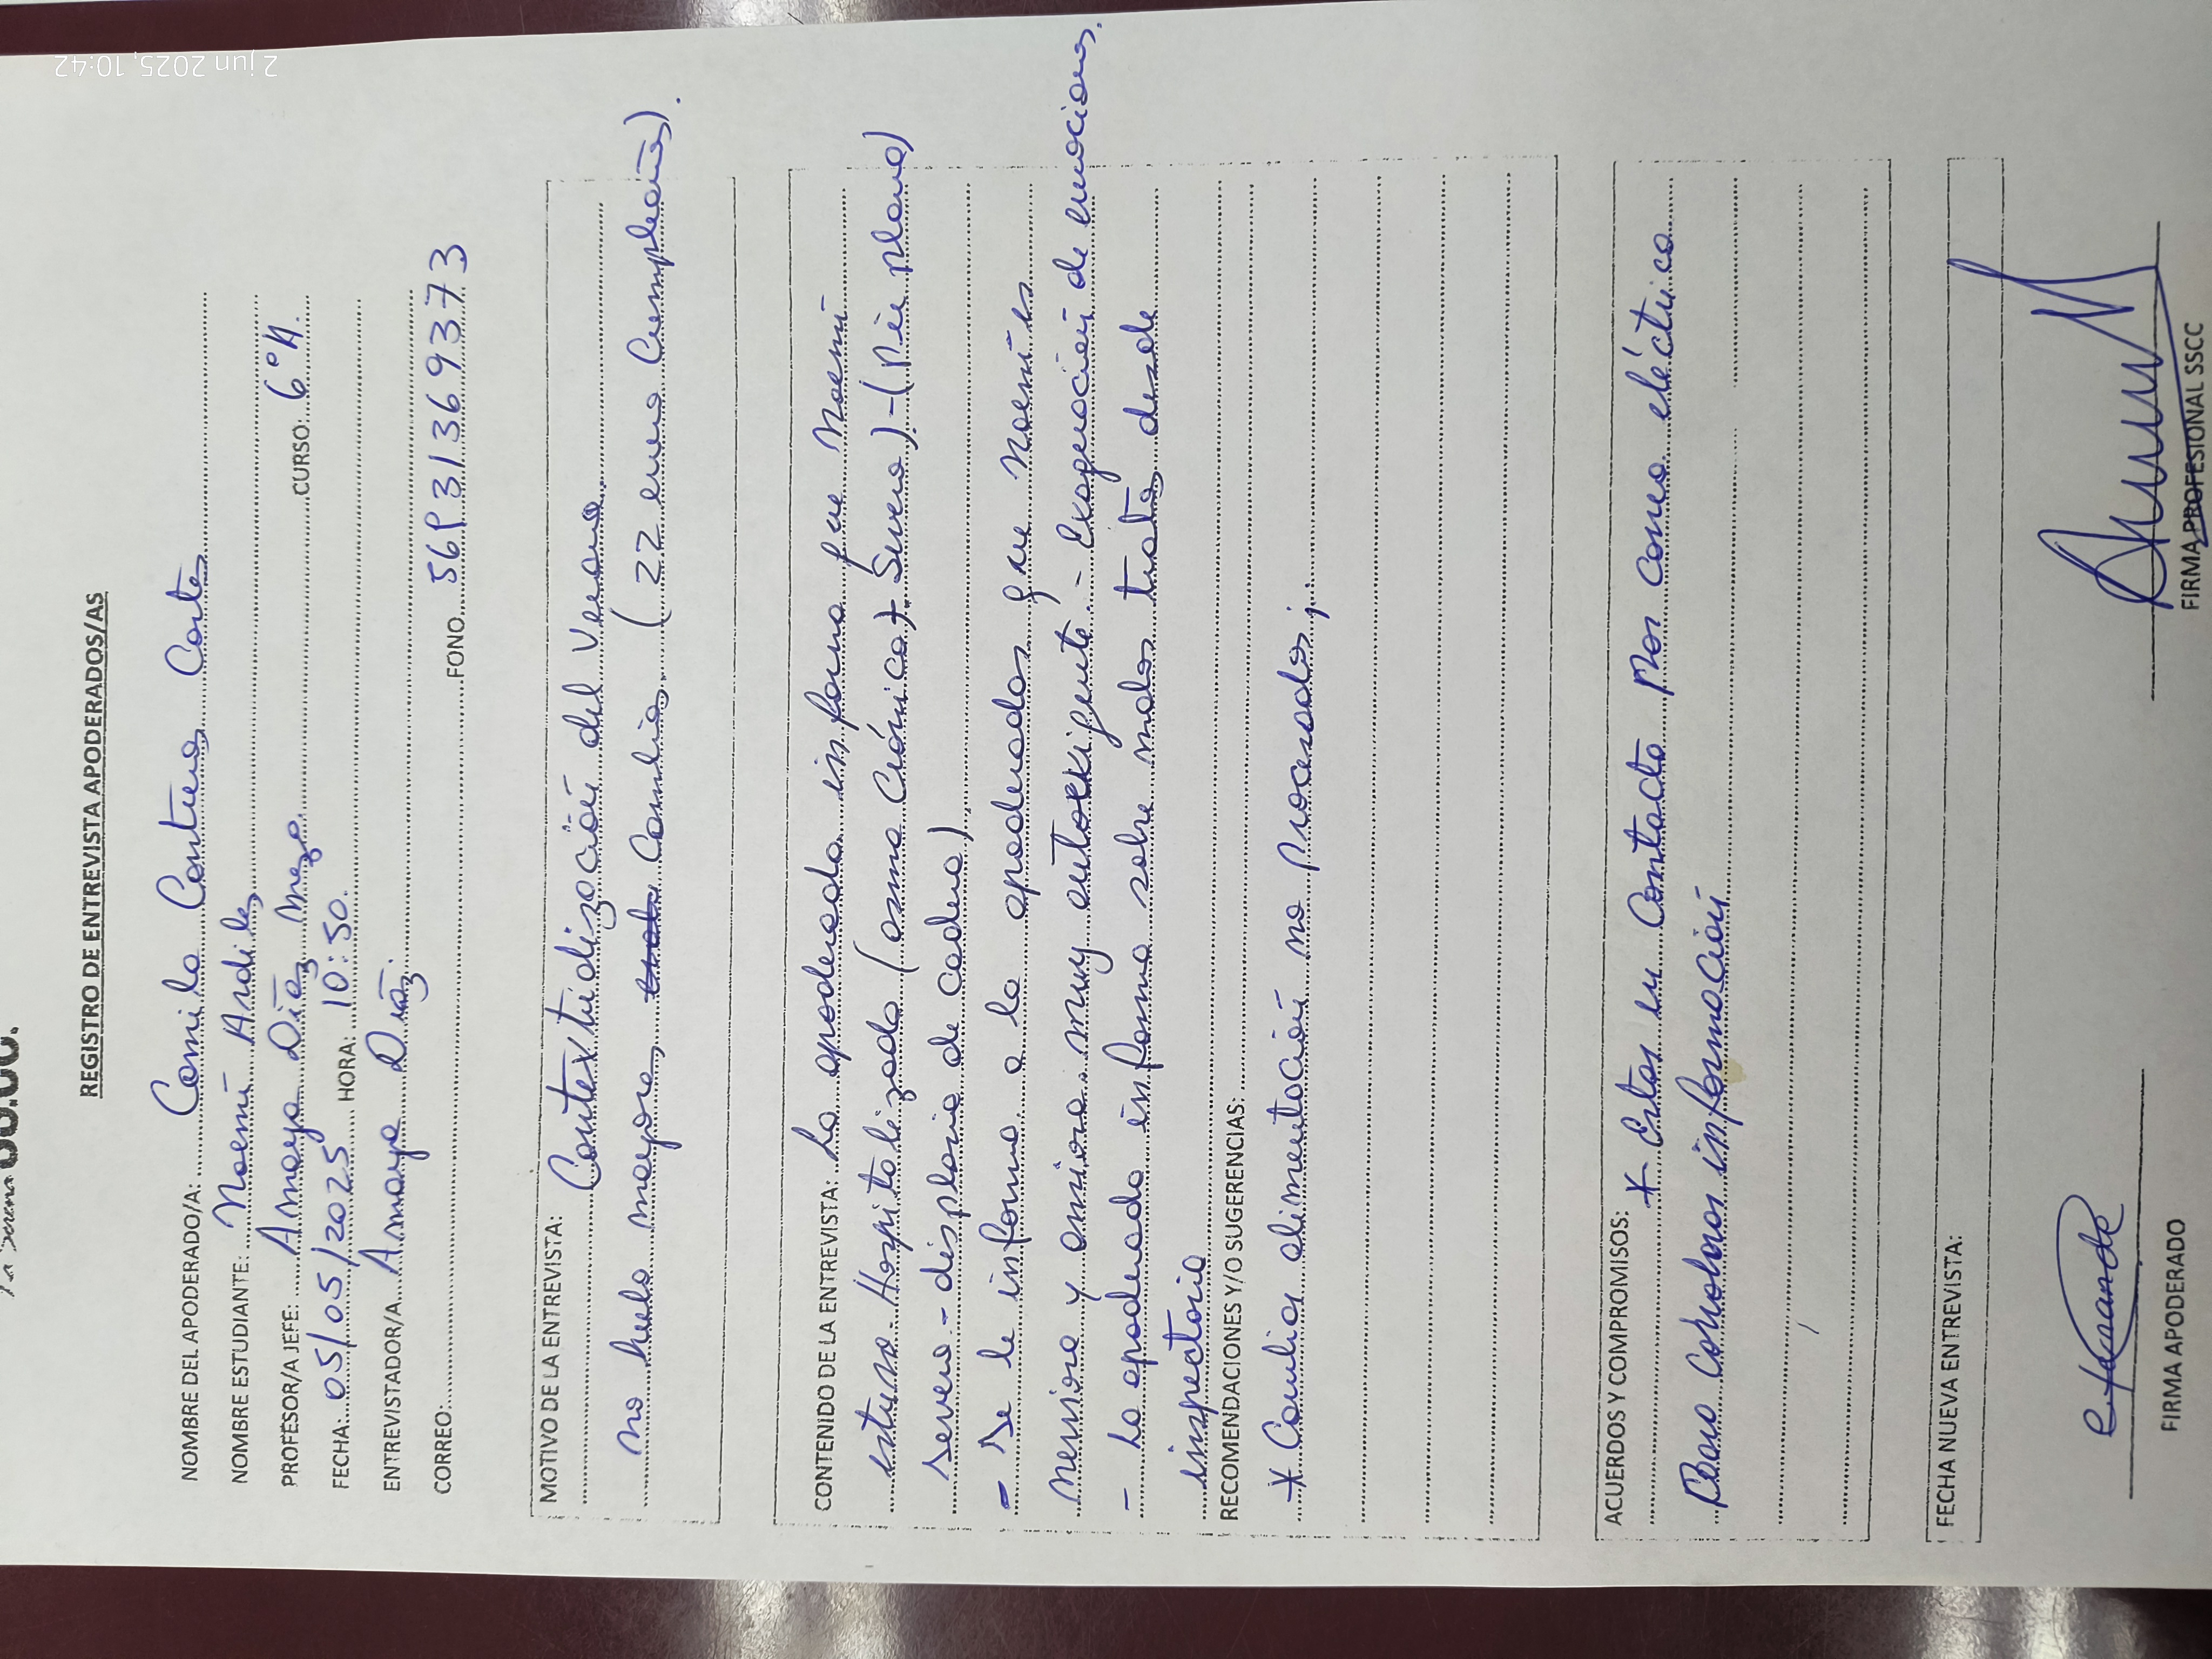 La Serena
REGISTRO DE ENTREVISTA APODERADOS/AS
NOMBRE DEL APODERADO/A: Camila Contreras Cortes
NOMBRE ESTUDIANTE: Noemí Ardiles
PROFESOR/A JEFE: Amaya Díaz Meza CURSO: 6°A.
FECHA: 05/05/2025 HORA: 10:50.
ENTREVISTADOR/A Amaya Díaz.
CORREO: FONO. 569313693 73
MOTIVO DE LA ENTREVISTA:
Contextualización del Verano
no hubo mayores cambios (22 enero Cumpleaños).
CONTENIDO DE LA ENTREVISTA: La apoderada informa que Noemí
estuvo Hospitalizada (asma Crónica + Severa) - (Pie plano)
Severo - displasia de cadera)
- Se le informa a la apoderados que Noemí es
nerviosa y ansiosa muy autoexigente - Exageración de emociones.
- La apoderada informa sobre malos tratos desde
inspectoria
RECOMENDACIONES Y/O SUGERENCIAS:
* Cambios alimentación no procesados ;
ACUERDOS Y COMPROMISOS:
* Estar en Contacto por correo eléctrico
Para Corroborar información
FECHA NUEVA ENTREVISTA:
FIRMA APODERADO FIRMA PROFESIONAL SSCC
2 jun 2025, 10:42